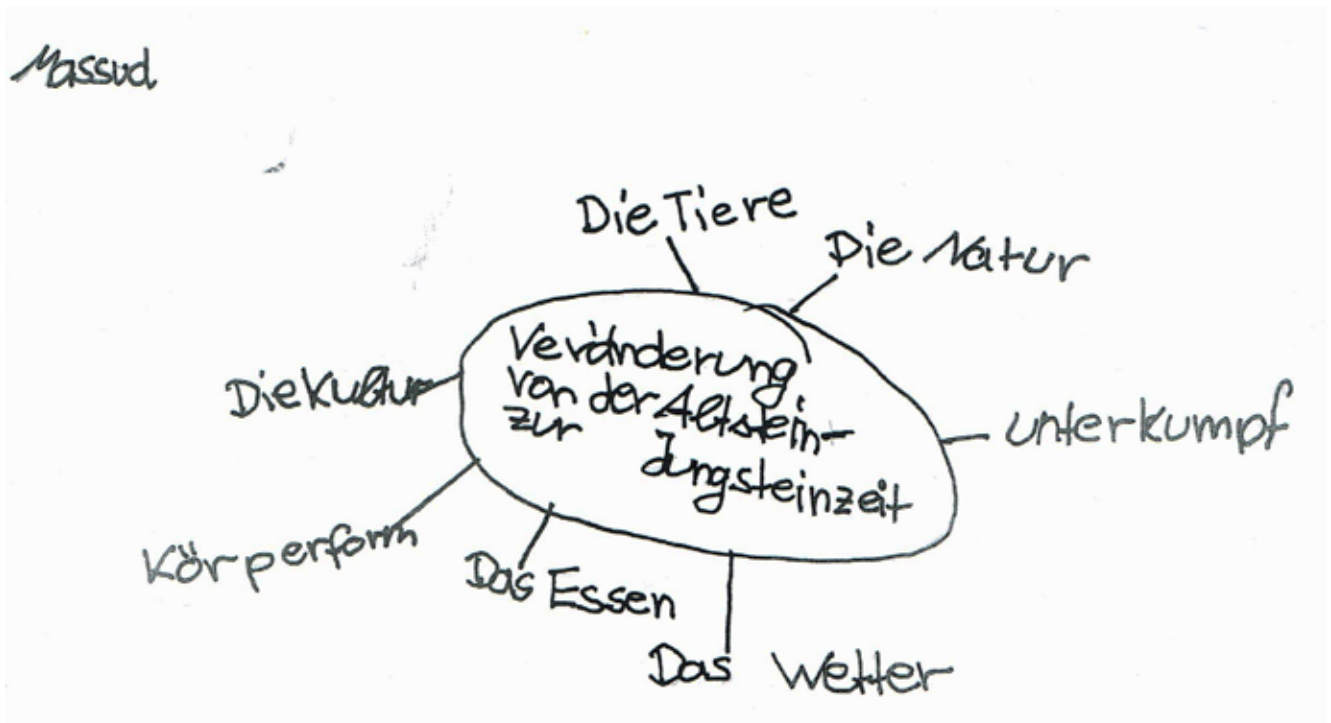 Massud
Die Tiere
Die Natur
Veränderung
von der Altstein-
zur
Jungsteinzeit
Die Kultur
unterkumpf
Körperform
Das Essen
Das Wetter